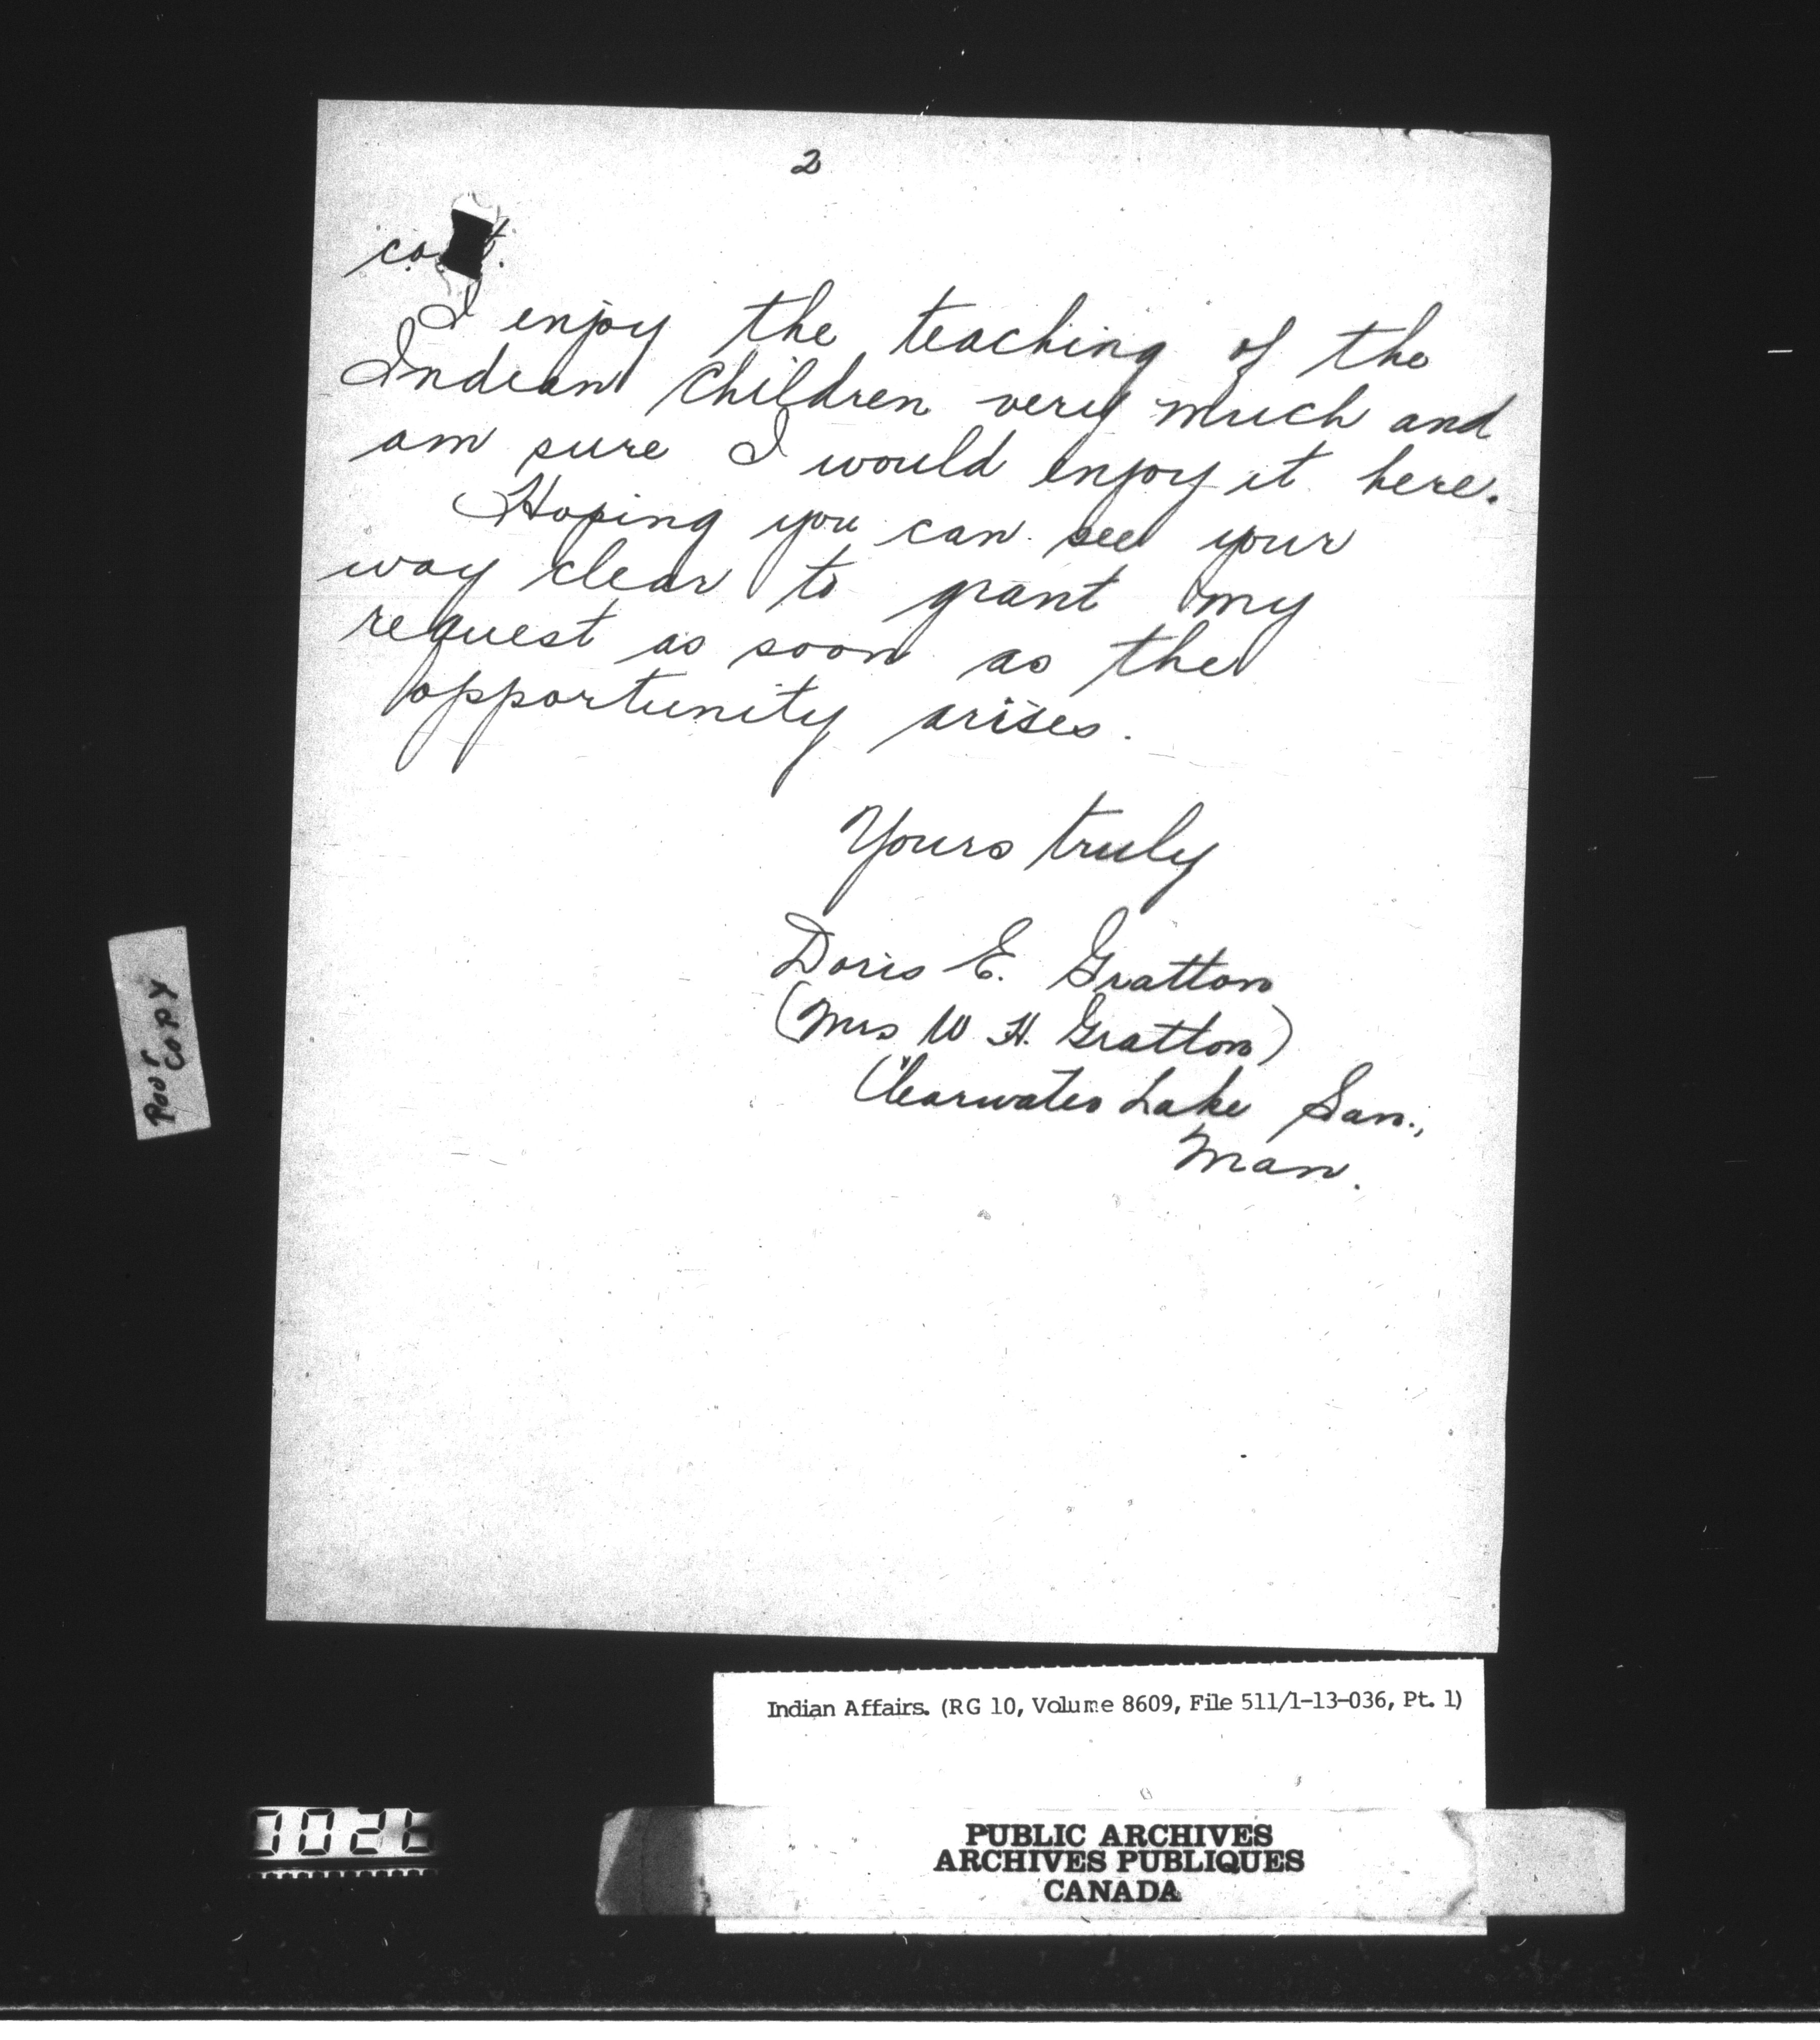 2
I enjoy the teaching of the
Indian children very much and
am sure I would enjoy it here.
Hoping you can see your
way clear to grant my
request as soon as the
opportunity arises.
Yours truly
Doris E. Gratton
(Mrs W H. Gratton)
Clearwater Lake San.,
Man.
Poor
COPY
Indian Affairs. (RG 10, Volume 8609, File 511/1-13-036, Pt. 1)
PUBLIC ARCHIVES
ARCHIVES PUBLIQUES
CANADA